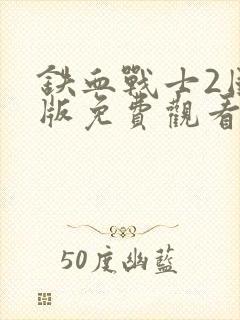 鉄血戰士2
版免費觀看
50度幽藍